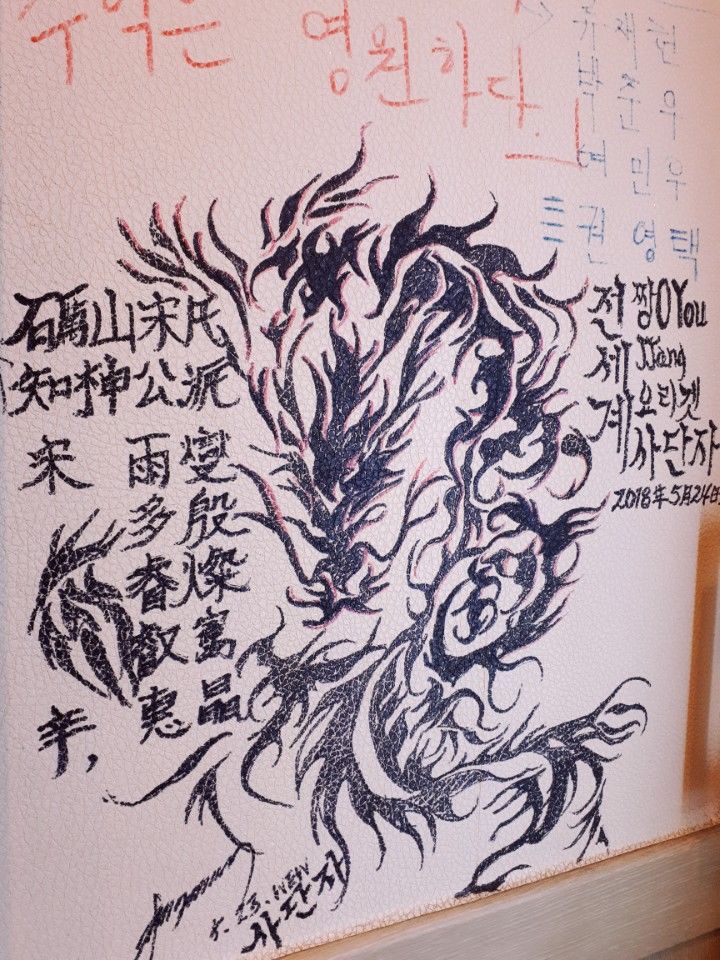 추억은 영원하다.
류세현
박준우
여민우
권영택
石馬山宋氏
知神公派
宋 雨燮
多殷
睿燦
叡富
惠晶
辛,
전 짱 OYou
제 JJang
계 요리겟
사단자
2018年5月24日
5.23.NEW
사단자